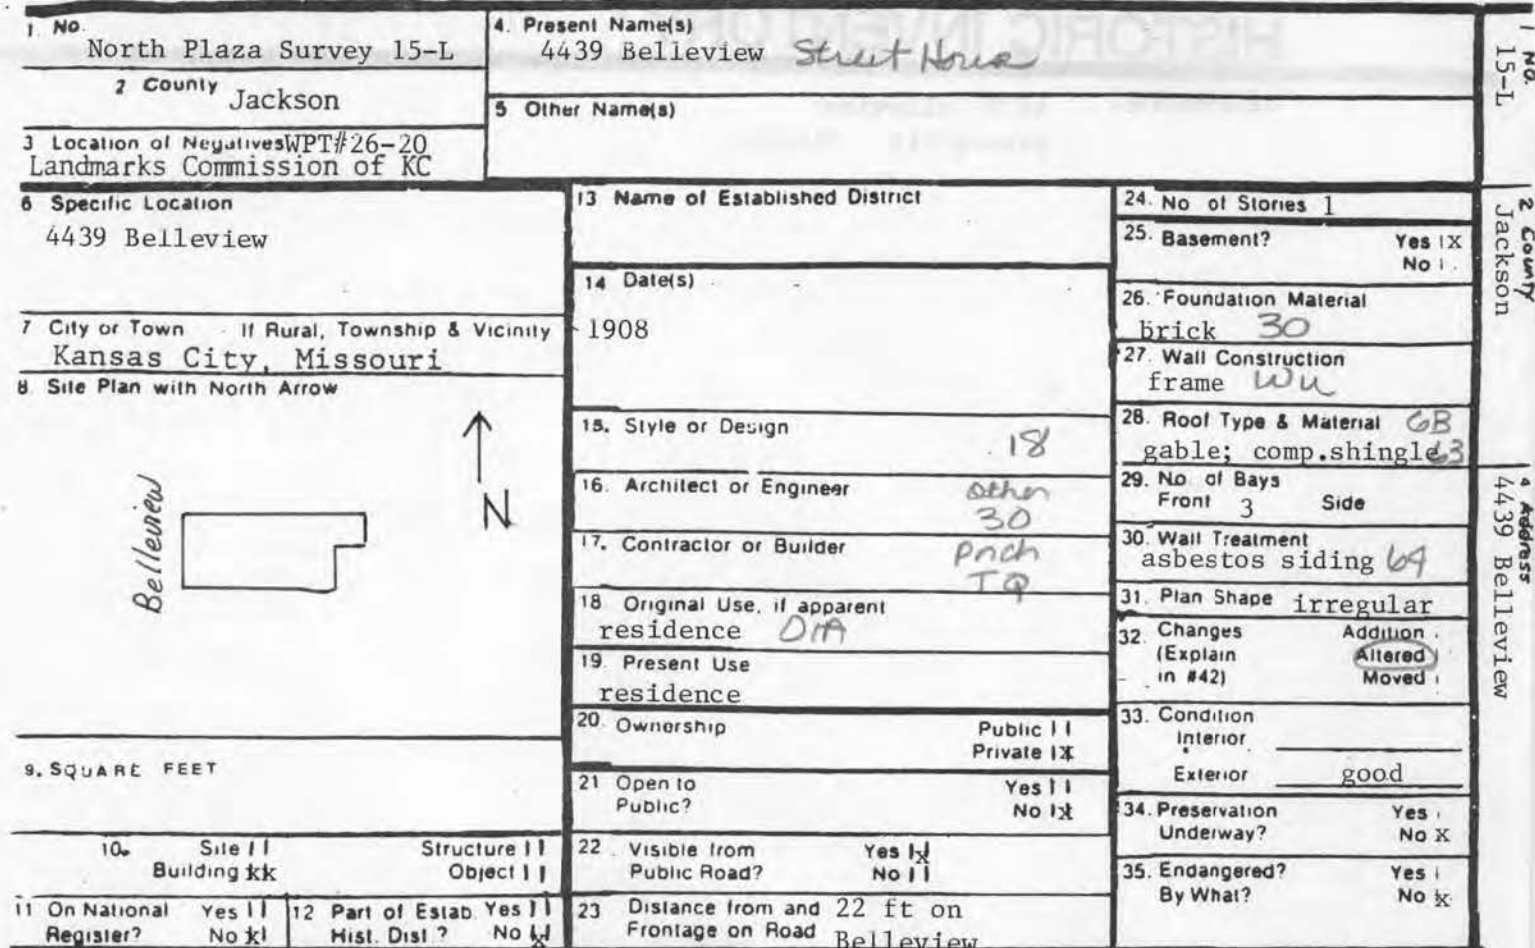 1. No.
North Plaza Survey 15-L
2 County
Jackson
3 Location of Negatives WPT#26-20
Landmarks Commission of KC
4. Present Name(s)
4439 Belleview Street House
5 Other Name(s)
6 Specific Location
4439 Belleview
7 City or Town If Rural, Township & Vicinity
Kansas City, Missouri
8 Site Plan with North Arrow
Belleview
N
9. SQUARE FEET
10. Site
Structure
Building xx
Object
11 On National Register?
Yes
No x
12 Part of Estab. Hist. Dist.?
Yes
No x
13 Name of Established District
14 Date(s)
1908
15. Style or Design
18
16. Architect or Engineer
other
30
17. Contractor or Builder
Prich
TQ
18 Original Use, if apparent
residence 01A
19. Present Use
residence
20. Ownership
Public
Private x
21 Open to
Public?
Yes
No x
22 Visible from
Public Road?
Yes x
No
23 Distance from and 22 ft on
Frontage on Road Belleview
24. No of Stories 1
25. Basement?
Yes x
No
26. Foundation Material
brick 30
27. Wall Construction
frame
28. Roof Type & Material GB
gable; comp.shingle 63
29. No. of Bays
Front 3 Side
30. Wall Treatment
asbestos siding 64
31. Plan Shape irregular
32. Changes
(Explain
in #42)
Addition
Altered
Moved
33. Condition
Interior
Exterior good
34. Preservation
Underway?
Yes
No X
35. Endangered?
By What?
Yes
No x
1 No.
15-L
2 County
Jackson
4 Address
4439 Belleview